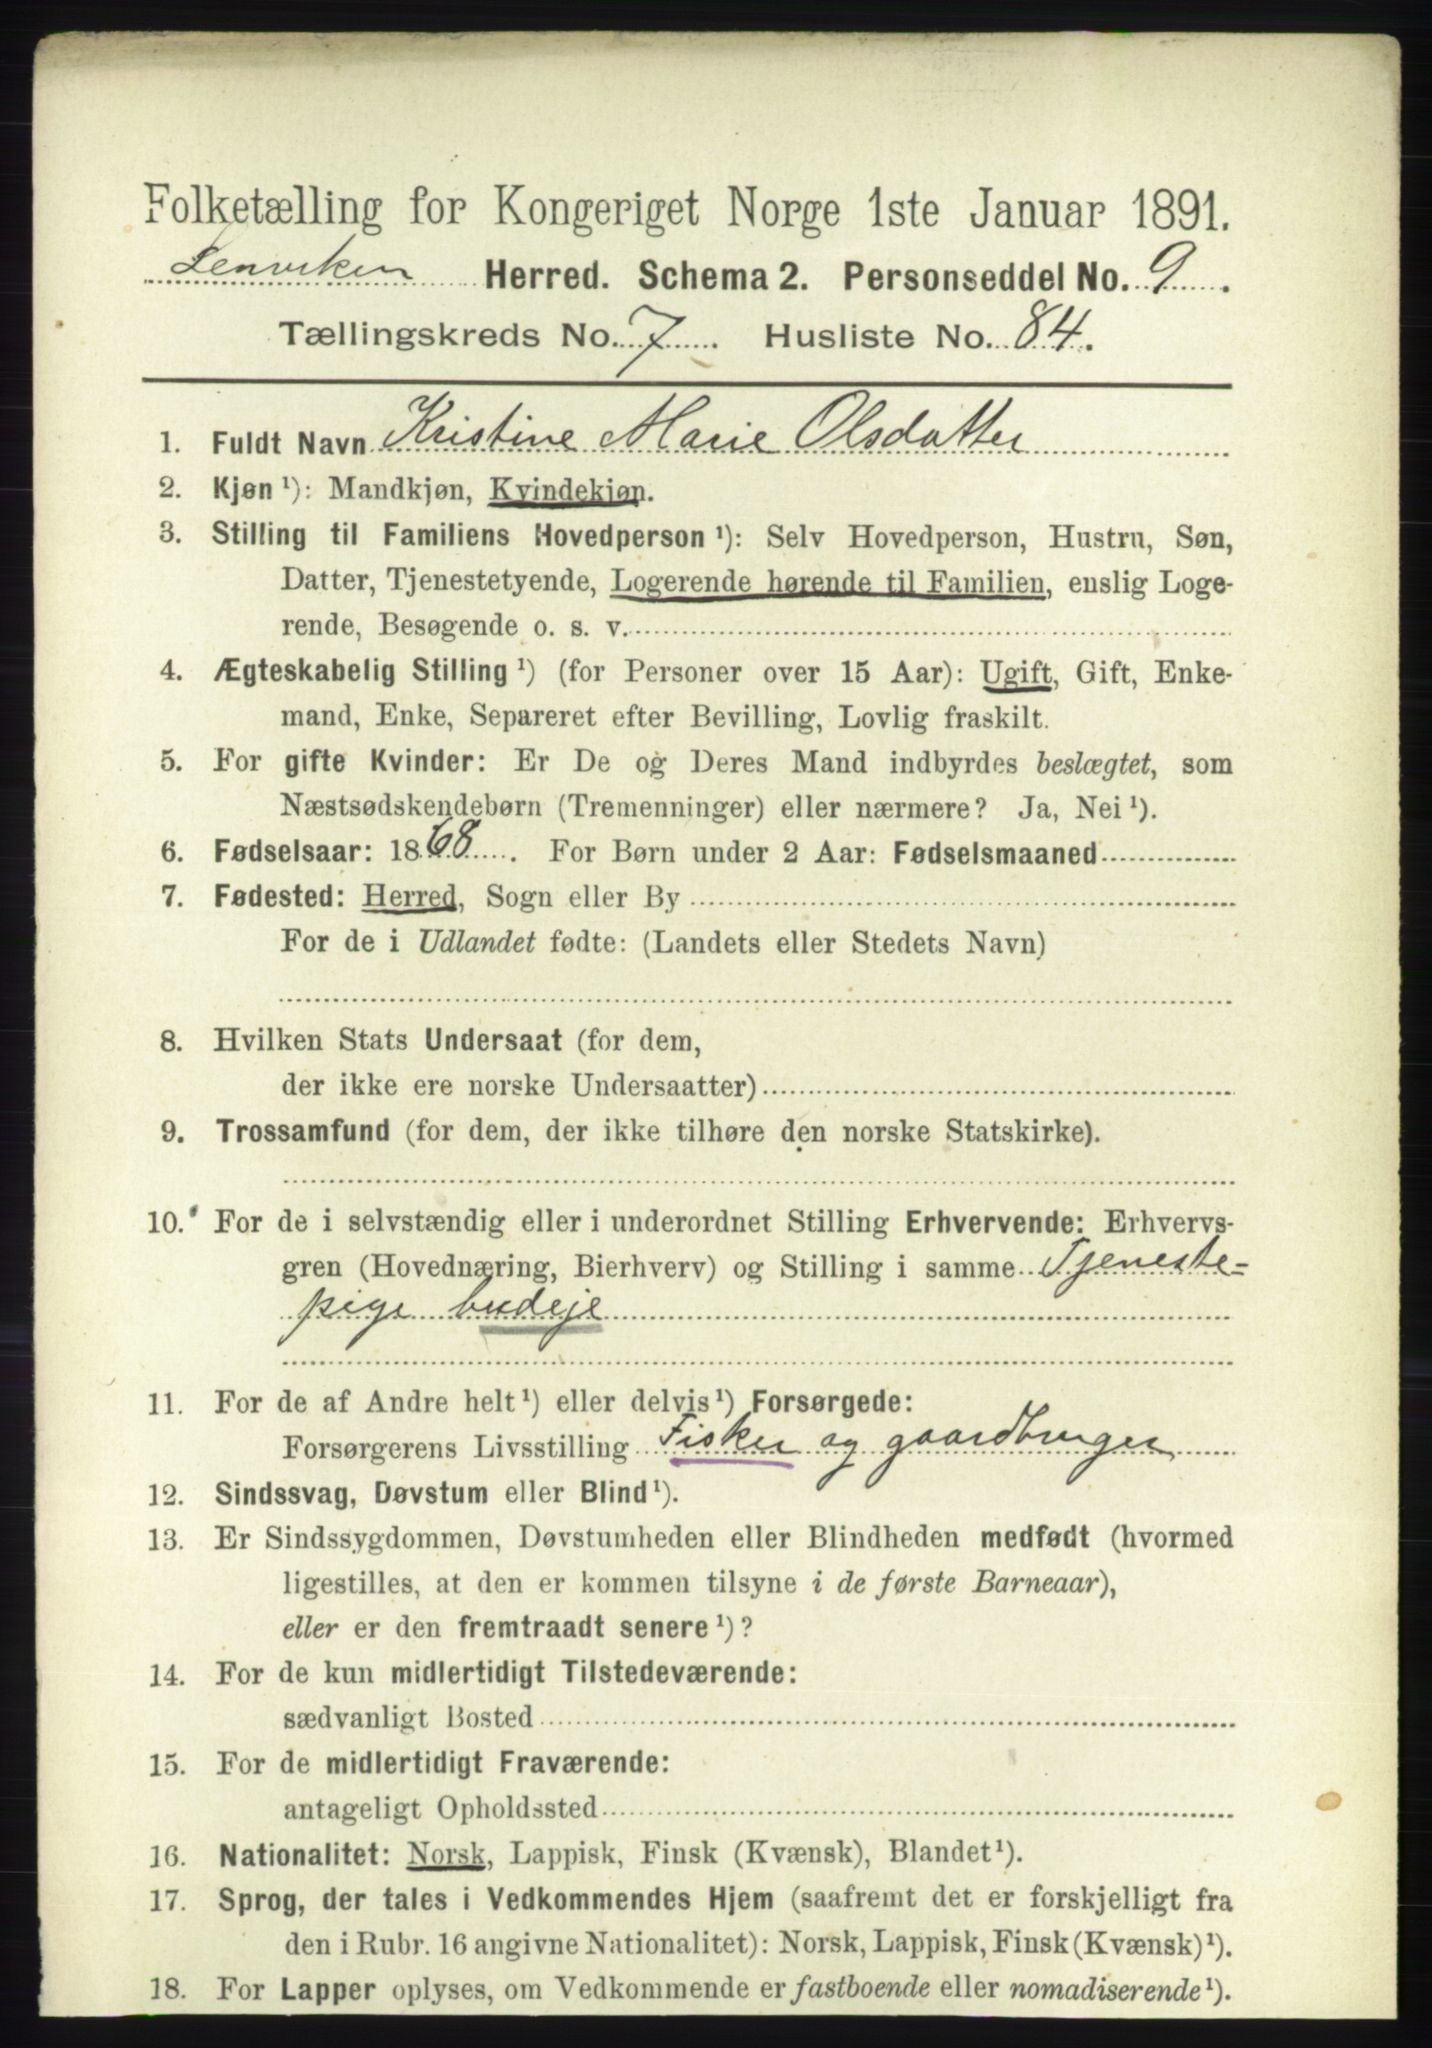 Folketælling for Kongeriget Norge 1ste Januar 1891.
Lenviken Herred. Schema 2. Personseddel No. 9.
Tællingskreds No. 7. Husliste No. 84.
1. Fuldt Navn Kristine Marie Olsdatter
2. Kjøn ¹): Mandkjøn, Kvindekjøn.
3. Stilling til Familiens Hovedperson ¹): Selv Hovedperson, Hustru, Søn,
Datter, Tjenestetyende, Logerende hørende til Familien, enslig Loge-
rende, Besøgende o. s. v.
4. Ægteskabelig Stilling ¹) (for Personer over 15 Aar): Ugift, Gift, Enke-
mand, Enke, Separeret efter Bevilling, Lovlig fraskilt.
5. For gifte Kvinder: Er De og Deres Mand indbyrdes beslægtet, som
Næstsødskendebørn (Tremenninger) eller nærmere? Ja, Nei ¹).
6. Fødselsaar: 1868. For Børn under 2 Aar: Fødselsmaaned
7. Fødested: Herred, Sogn eller By
For de i Udlandet fødte: (Landets eller Stedets Navn)
8. Hvilken Stats Undersaat (for dem,
der ikke ere norske Undersaatter)
9. Trossamfund (for dem, der ikke tilhøre den norske Statskirke).
10. For de i selvstændig eller i underordnet Stilling Erhvervende: Erhvervs-
gren (Hovednæring, Bierhverv) og Stilling i samme Tjeneste-
pige budeje
11. For de af Andre helt ¹) eller delvis ¹) Forsørgede:
Forsørgerens Livsstilling Fisker og gaardbruger
12. Sindssvag, Døvstum eller Blind ¹).
13. Er Sindssygdommen, Døvstumheden eller Blindheden medfødt (hvormed
ligestilles, at den er kommen tilsyne i de første Barneaar),
eller er den fremtraadt senere ¹)?
14. For de kun midlertidigt Tilstedeværende:
sædvanligt Bosted
15. For de midlertidigt Fraværende:
antageligt Opholdssted
16. Nationalitet: Norsk, Lappisk, Finsk (Kvænsk), Blandet ¹).
17. Sprog, der tales i Vedkommendes Hjem (saafremt det er forskjelligt fra
den i Rubr. 16 angivne Nationalitet): Norsk, Lappisk, Finsk (Kvænsk) ¹).
18. For Lapper oplyses, om Vedkommende er fastboende eller nomadiserende ¹).